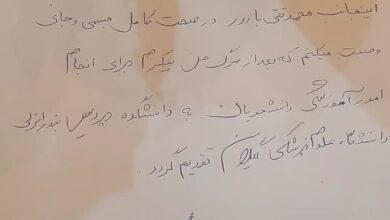 اینجانب محمدتقی بارور در صحت کامل جسمی و جانی
وصیت میکنم که بعد از مرگ من پیکرم برای انجام
امور آموزشی دانشجویان به دانشکده پردیس بندرانزلی
دانشگاه علوم پزشکی گیلان تقدیم گردد.